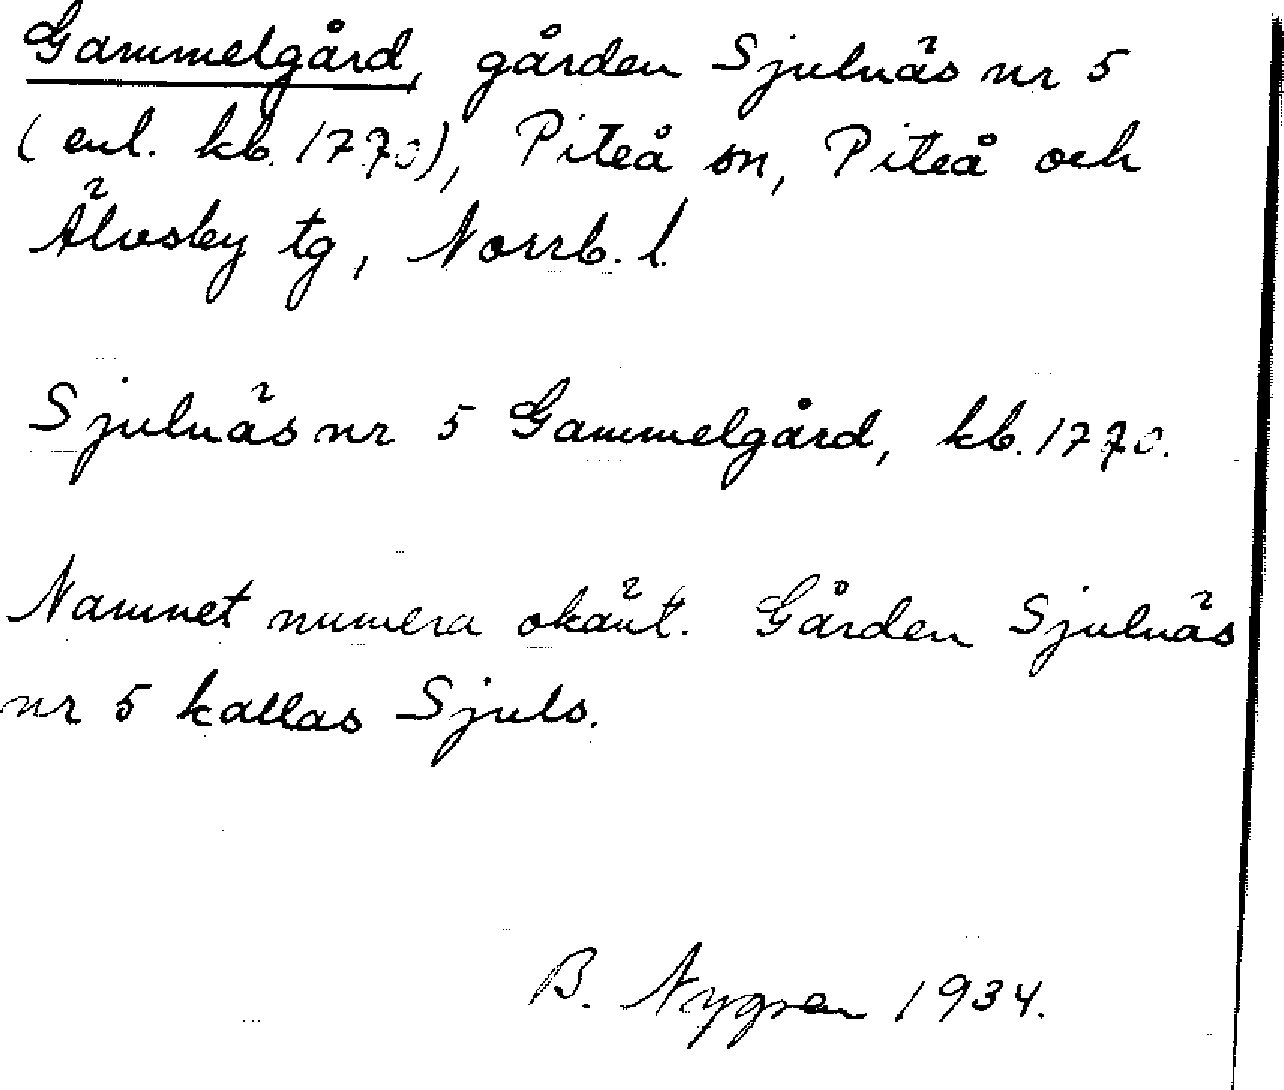 Gammelgård, gården Sjulnäs nr 5
(enl. kb. 1770), Piteå sn, Piteå och
Älvsby tg, Norrb. l.
Sjulnäs nr 5 Gammelgård, kb. 1770.
Namnet numera okänt. Gården Sjulnäs
nr 5 kallas Sjuls.
B. Nygren 1934.